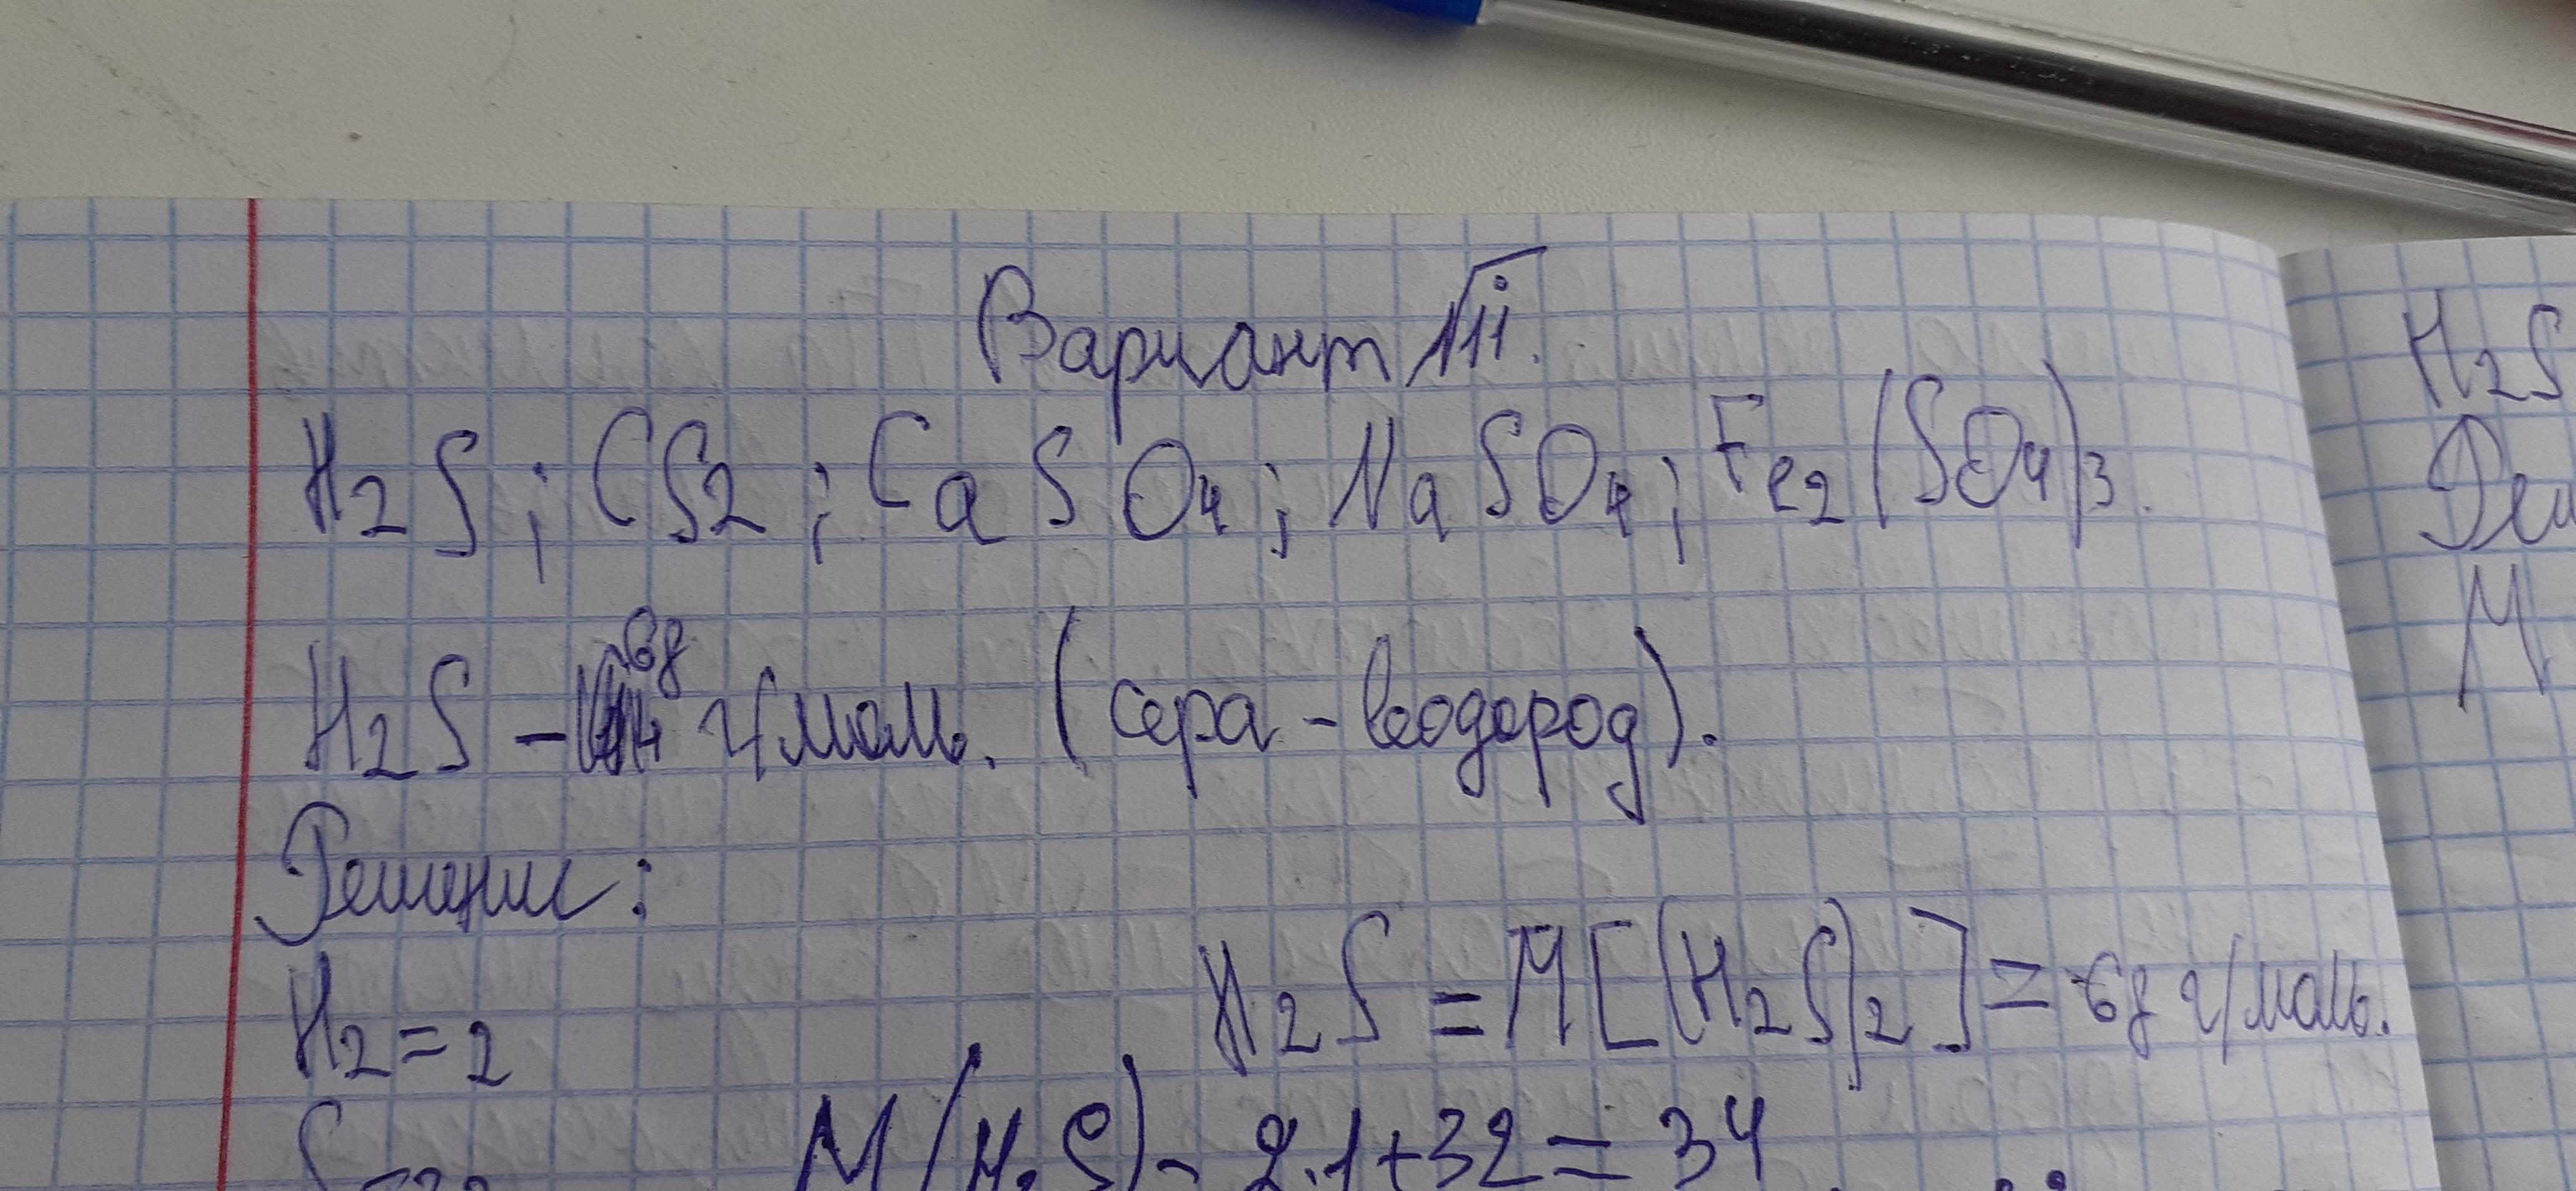 Вариант III.
H2S ; CS2 ; CaSO4 ; NaSO4 ; Fe2(SO4)3.
H2S - 68 г/моль. (сера - водород).
Решение:
H2 = 2
H2S = M[(H2S)2] = 68 г/моль.
M(H2S) - 2·1+32 = 34
H2S
M